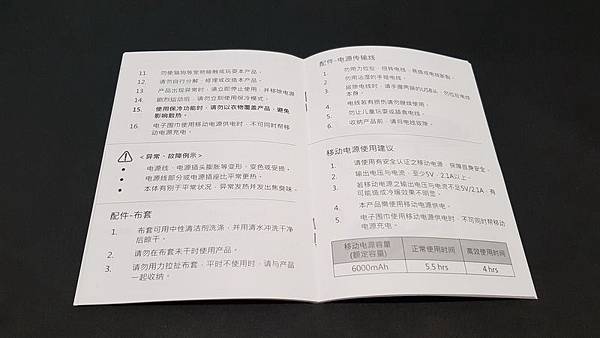 11. 勿使猫狗等宠物接触或玩耍本产品。
12. 请勿自行分解、修理或改造本产品。
13. 产品出现异常时，请立即停止使用，并移除电源
14. 剧烈运动后，请勿立即使用保冷模式。
15. 使用保冷功能时，请勿以衣物覆盖产品，避免
影响散热。
16. 电子围巾使用移动电源供电时，不可同时帮移
动电源充电。
<异常、故障例示>
• 电源线、电源插头膨胀等变形、变色或受损。
• 电源线部分或电源插座比平常更热。
• 本体有别于平常状况，异常发热并发出焦臭味。
配件-布套
1. 布套可用中性清洁剂洗涤，并用清水冲洗干净
后晾干。
2. 请勿在布套未干时使用产品。
3. 请勿用力拉扯布套，平时不使用时，请与产品
一起收纳。
配件-电源传输线
1. 勿用力拉扯、扭转电线，易造成电线断裂。
2. 勿用沾湿的手碰电线。
3. 拔除电线时，请手握两端的USB头，勿拉扯电线
本身。
4. 电线若有损伤请勿继续使用。
5. 勿让儿童玩耍或舔食电线。
6. 收纳产品前，请将电线拔除。
移动电源使用建议
1. 请使用有安全认证之移动电源，保障自身安全。
2. 输出电压与电流，至少5V / 2.1A以上。
3. 若移动电源之输出电压与电流不足5V/2.1A，有
可能造成冷暖效果不明显。
4. 本产品需使用移动电源供电。
5. 电子围巾使用移动电源供电时，不可同时帮移动
电源充电。
移动电源容量
(额定容量) 正常使用时间 高效使用时间
6000mAh 5.5 hrs 4 hrs